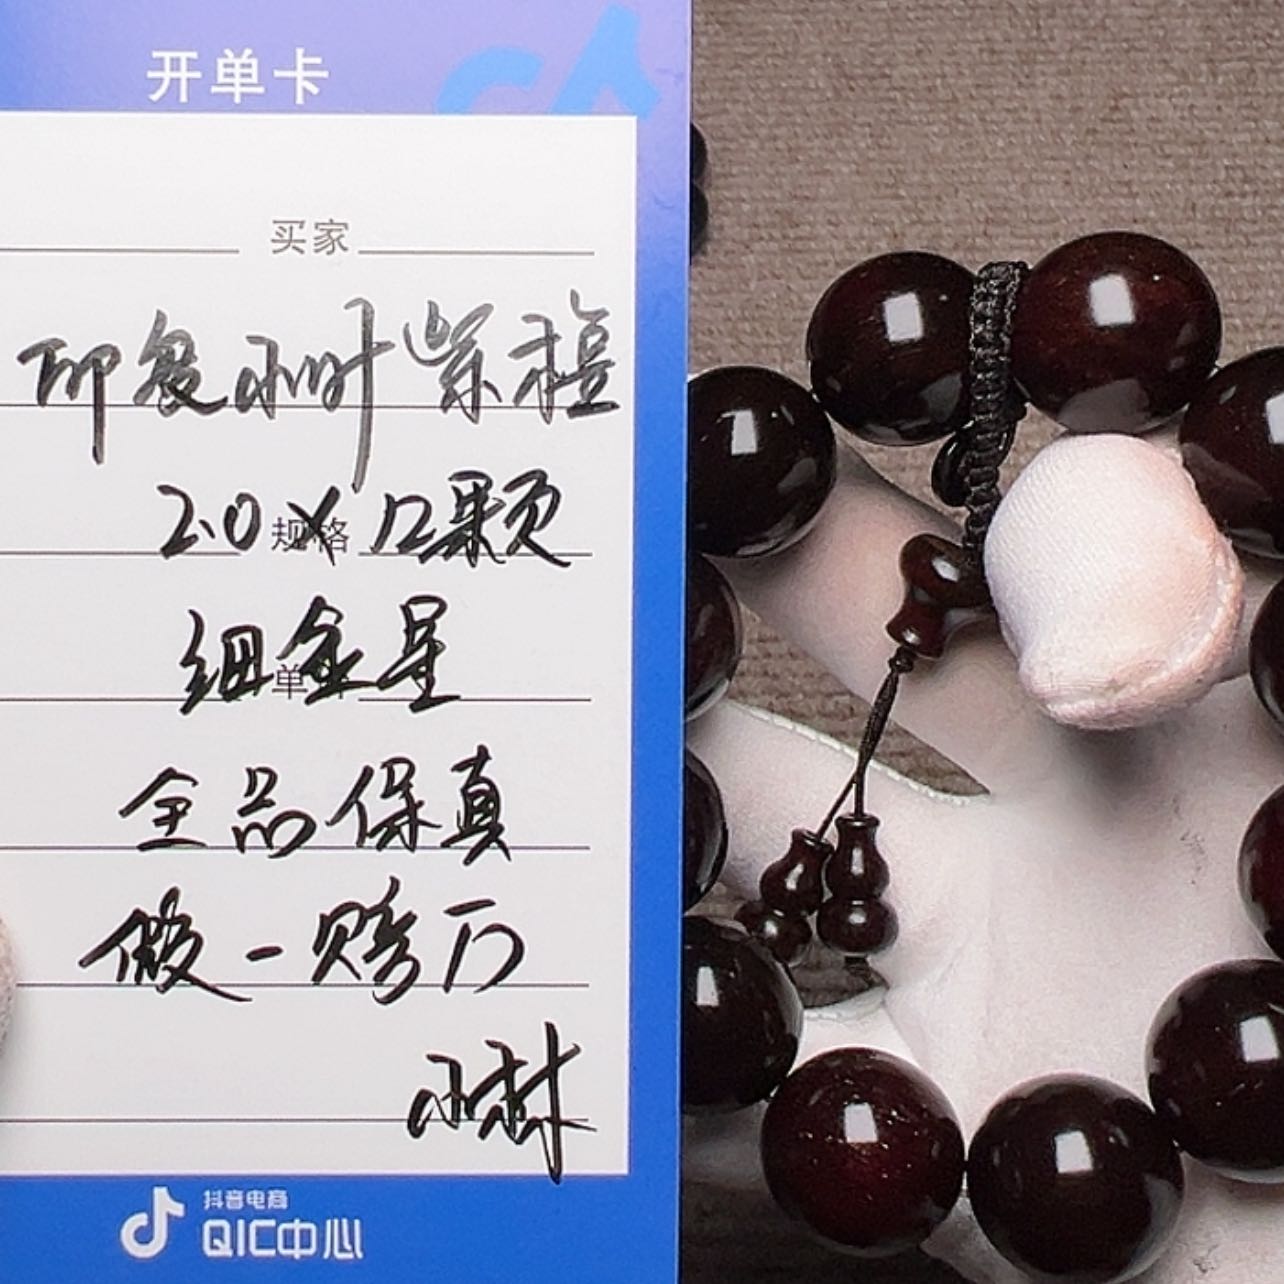 开单卡
买家
印度小叶紫檀
2.0X12颗
规格
细金星
单
全品保真
假一赔万
小琳
抖音电商
QIC中心